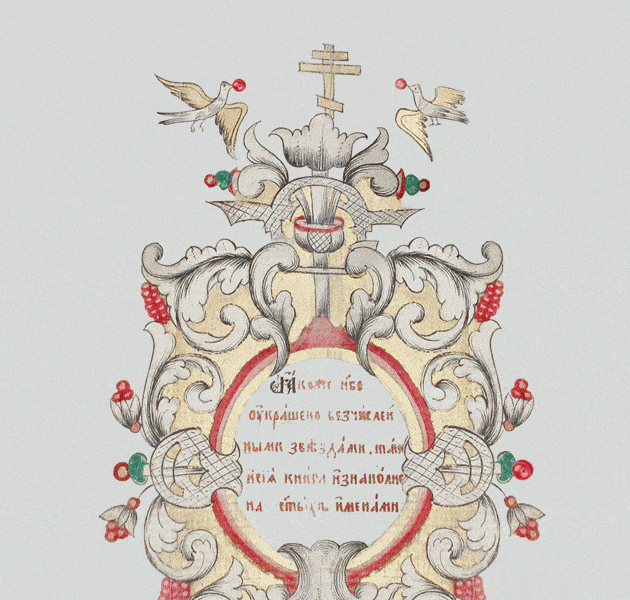 Ꙗкоже н҃бо
оу҆кра́шено беꙁчи́слен
ными ѕвѣзда́ми, та́кѡ
и҆ сїѧ̀ кни́га и҆ꙁнапо́лне
на ст҃ы́хъ и҆мена́ми